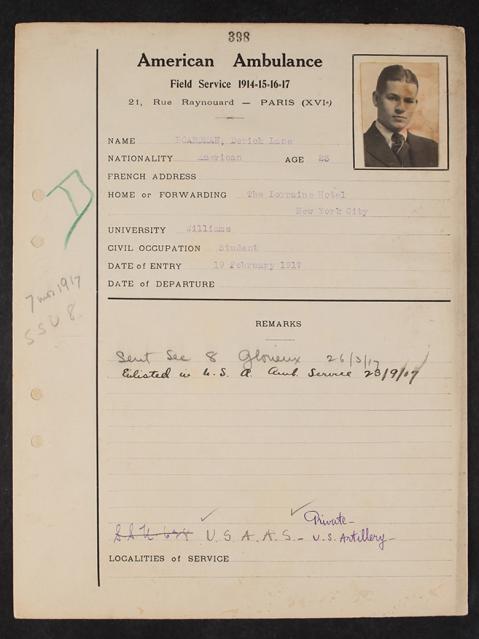 398
American Ambulance
Field Service 1914-15-16-17
21, Rue Raynouard — PARIS (XVIe)
NAME BOARDMAN, Derick Lane
NATIONALITY American AGE 23
FRENCH ADDRESS
HOME or FORWARDING The Lorraine Hotel
New York City
UNIVERSITY Williams
CIVIL OCCUPATION Student
DATE of ENTRY 19 February 1917
DATE of DEPARTURE
7 mos 1917
S S U 8.
REMARKS
Sent Sec 8 Glorieux 26/3/17
Enlisted in U. S. A. Amb. Service 23/9/17
Private —
S.S.U. U. S. A. A. S. — U.S. Artillery —
LOCALITIES of SERVICE